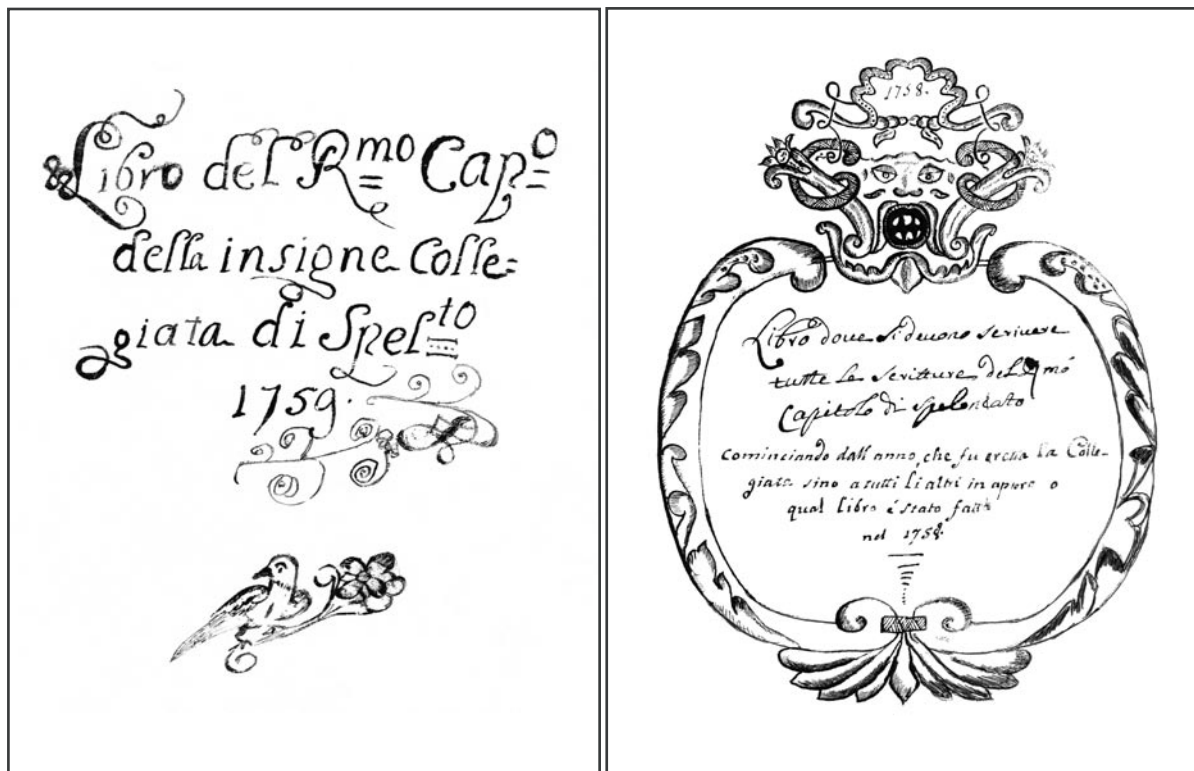 Libro del R.mo Cap.o
della insigne Colle=
giata di Spel.to
1759.
1758.
Libro doue si deuono scriuere
tutte le scritture del Rmó
Capitolo di speloncato
cominciando dall' anno, che fu eretta la Colle-
giata sino a tutti li altri in apure o
qual libro é stato fatto
nel 1758.